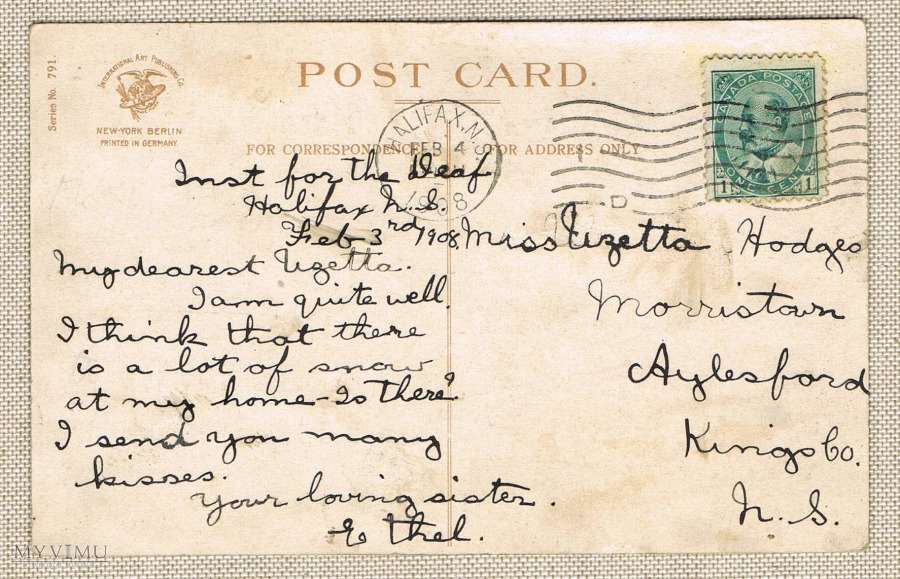 Series No. 791.
INTERNATIONAL ART PUBLISHING Co.
NEW-YORK BERLIN
PRINTED IN GERMANY
POST CARD.
FOR CORRESPONDENCE
FOR ADDRESS ONLY
HALIFAX, N.S.
FEB 4
1908
D
CANADA POSTAGE
ONE CENT
1 1
Inst for the Deaf
Halifax N.S.
Feb 3rd 1908
My dearest Uzetta.
I am quite well.
I think that there
is a lot of snow
at my home - Is there?
I send you many
kisses.
Your loving sister.
Ethel.
Miss Uzetta Hodges
Morristown
Aylesford
Kings Co.
N. S.
MYVIMU